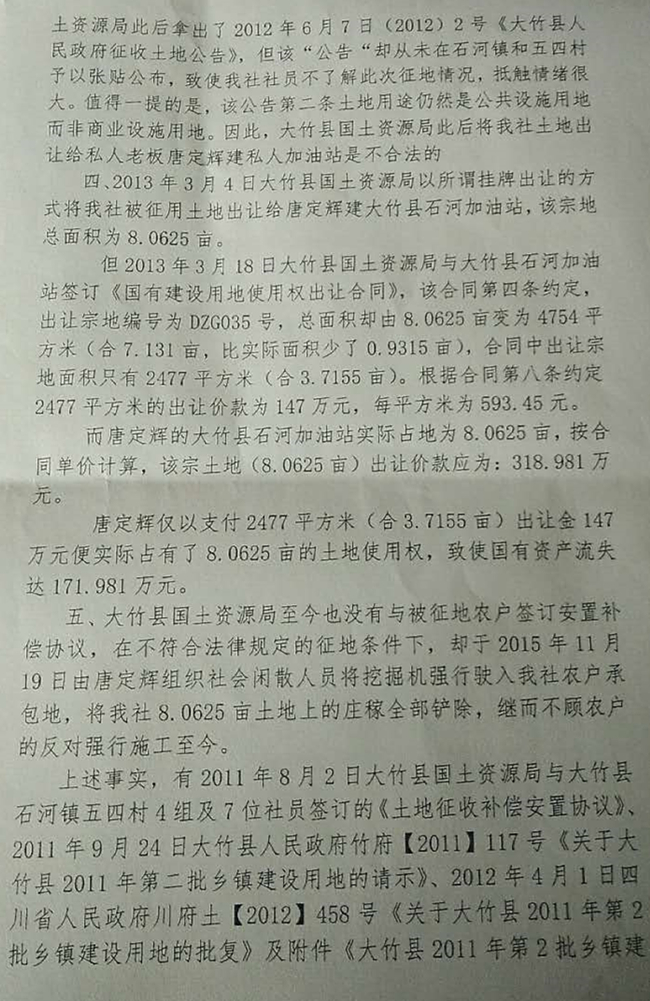 土资源局此后拿出了 2012 年 6 月 7 日（2012）2 号《大竹县人
民政府征收土地公告》，但该“公告“却从未在石河镇和五四村
予以张贴公布，致使我社社员不了解此次征地情况，抵触情绪很
大。值得一提的是，该公告第二条土地用途仍然是公共设施用地
而非商业设施用地。因此，大竹县国土资源局此后将我社土地出
让给私人老板唐定辉建私人加油站是不合法的
四、2013 年 3 月 4 日大竹县国土资源局以所谓挂牌出让的方
式将我社被征用土地出让给唐定辉建大竹县石河加油站，该宗地
总面积为 8.0625 亩。
但 2013 年 3 月 18 日大竹县国土资源局与大竹县石河加油
站签订《国有建设用地使用权出让合同》，该合同第四条约定，
出让宗地编号为 DZG035 号，总面积却由 8.0625 亩变为 4754 平
方米（合 7.131 亩，比实际面积少了 0.9315 亩），合同中出让宗
地面积只有 2477 平方米（合 3.7155 亩）。根据合同第八条约定
2477 平方米的出让价款为 147 万元，每平方米为 593.45 元。
而唐定辉的大竹县石河加油站实际占地为 8.0625 亩，按合
同单价计算，该宗土地（8.0625 亩）出让价款应为：318.981 万
元。
唐定辉仅以支付 2477 平方米（合 3.7155 亩）出让金 147
万元便实际占有了 8.0625 亩的土地使用权，致使国有资产流失
达 171.981 万元。
五、大竹县国土资源局至今也没有与被征地农户签订安置补
偿协议，在不符合法律规定的征地条件下，却于 2015 年 11 月
19 日由唐定辉组织社会闲散人员将挖掘机强行驶入我社农户承
包地，将我社 8.0625 亩土地上的庄稼全部铲除，继而不顾农户
的反对强行施工至今。
上述事实，有 2011 年 8 月 2 日大竹县国土资源局与大竹县
石河镇五四村 4 组及 7 位社员签订的《土地征收补偿安置协议》、
2011 年 9 月 24 日大竹县人民政府竹府【2011】117 号《关于大
竹县 2011 年第二批乡镇建设用地的请示》、2012 年 4 月 1 日四
川省人民政府川府土【2012】458 号《关于大竹县 2011 年第 2
批乡镇建设用地的批复》及附件《大竹县 2011 年第 2 批乡镇建